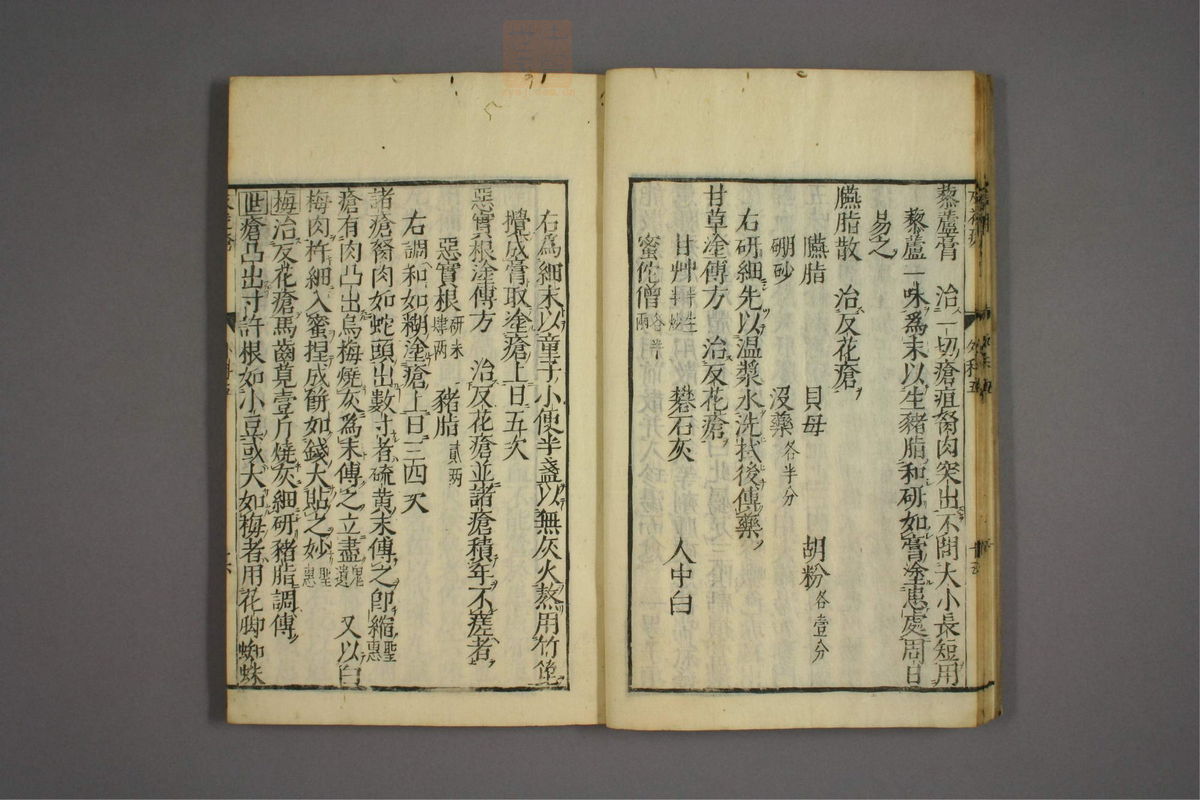 藜蘆膏 治一切瘡疽胬肉突出不問大小長短用
藜蘆一味爲末以生豬脂和研如膏塗患處周日
易之
臙脂散 治反花瘡
臙脂 貝母 胡粉各壹分
硼砂 沒藥各半分
右研細先以温漿水洗拭後傅藥
甘草塗傅方 治反花瘡
甘艸半生半炒 礬石灰 人中白
蜜佗僧各半兩
右爲細末以童子小便半盞以無灰火熬用竹篦
攪成膏取塗瘡上日五次
惡實根塗傅方 治反花瘡並諸瘡積年不瘥者
惡實根研末肆兩 豬脂貳两
右調和如糊塗瘡上日三四次
諸瘡胬肉如蛇頭出數寸者硫黄末傅之卽縮聖惠
瘡有肉凸出烏梅燒灰爲末傅之立盡鬼遺 又以白
梅肉杵細入蜜捏成餅如錢大貼之妙聖惠
梅治反花瘡馬齒莧壹斤燒灰細研豬脂調傅
世瘡凸出寸許根如小豆或大如梅者用花脚蜘蛛